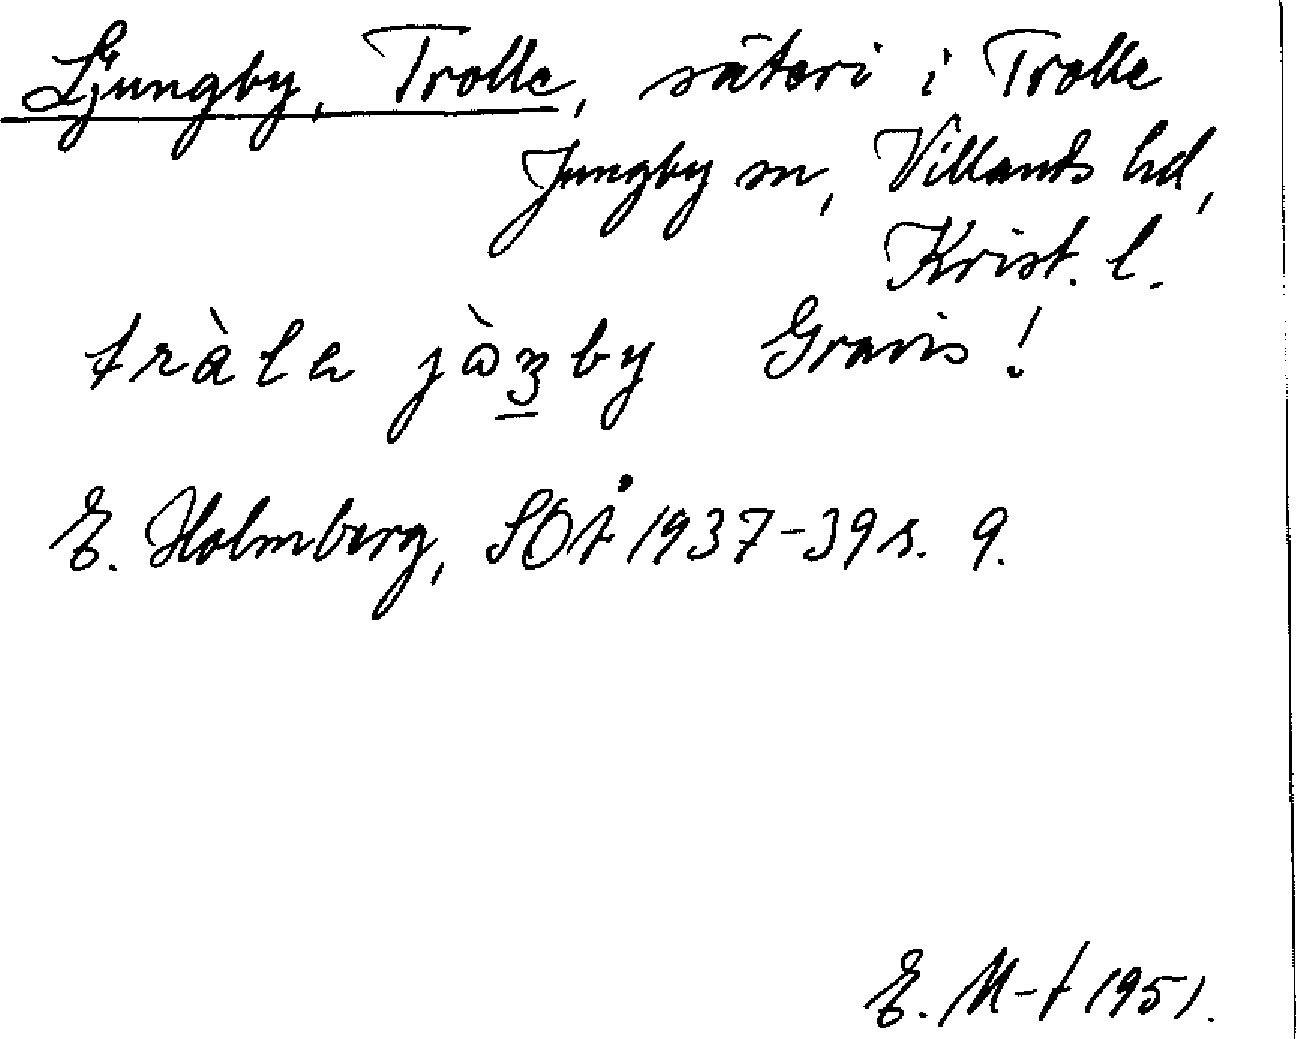 Ljungby, Trolle, säteri i Trolle
Jungby sn, Villands hd,
Krist. l.
Gravis!
E. Holmberg, SOÅ 1937-39 s. 9.
E. M-t 1951.